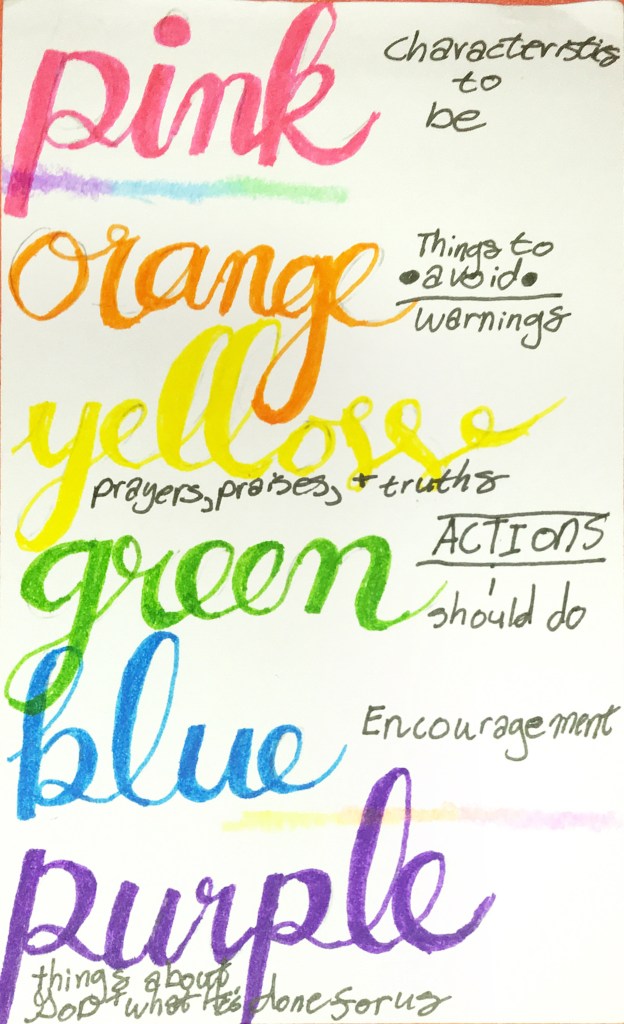 pink
characteristics
to
be
orange
Things to
•avoid•
warnings
yellow
prayers, praises, + truths
green
ACTIONS
I
should do
blue
Encouragement
purple
things about
GOD + what He's done for us